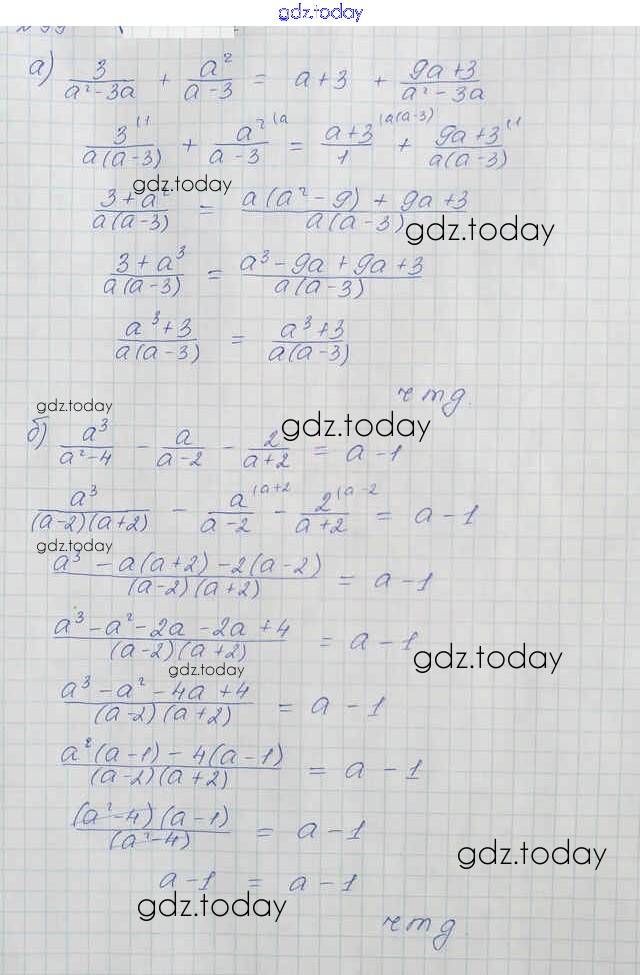 gdz.today
а) 3/(a²-3a) + a²/(a-3) = a+3 + (9a+3)/(a²-3a)
3^(1/(a(a-3)) + a²^(a/(a-3) = (a+3)^(a(a-3)/1 + (9a+3)^(1/(a(a-3))
gdz.today
(3+a²)/(a(a-3)) = (a(a²-9) + 9a+3)/(a(a-3))
gdz.today
(3+a³)/(a(a-3)) = (a³-9a+9a+3)/(a(a-3))
(a³+3)/(a(a-3)) = (a³+3)/(a(a-3))
чтд.
gdz.today
gdz.today
б) a³/(a²-4) - a/(a-2) - 2/(a+2) = a-1
a³/((a-2)(a+2)) - a^(a+2/(a-2) - 2^(a-2/(a+2) = a-1
gdz.today
(a³-a(a+2)-2(a-2))/((a-2)(a+2)) = a-1
(a³-a²-2a-2a+4)/((a-2)(a+2)) = a-1
gdz.today
gdz.today
(a³-a²-4a+4)/((a-2)(a+2)) = a-1
(a²(a-1)-4(a-1))/((a-2)(a+2)) = a-1
((a²-4)(a-1))/(a²-4) = a-1
gdz.today
a-1 = a-1
gdz.today
чтд.